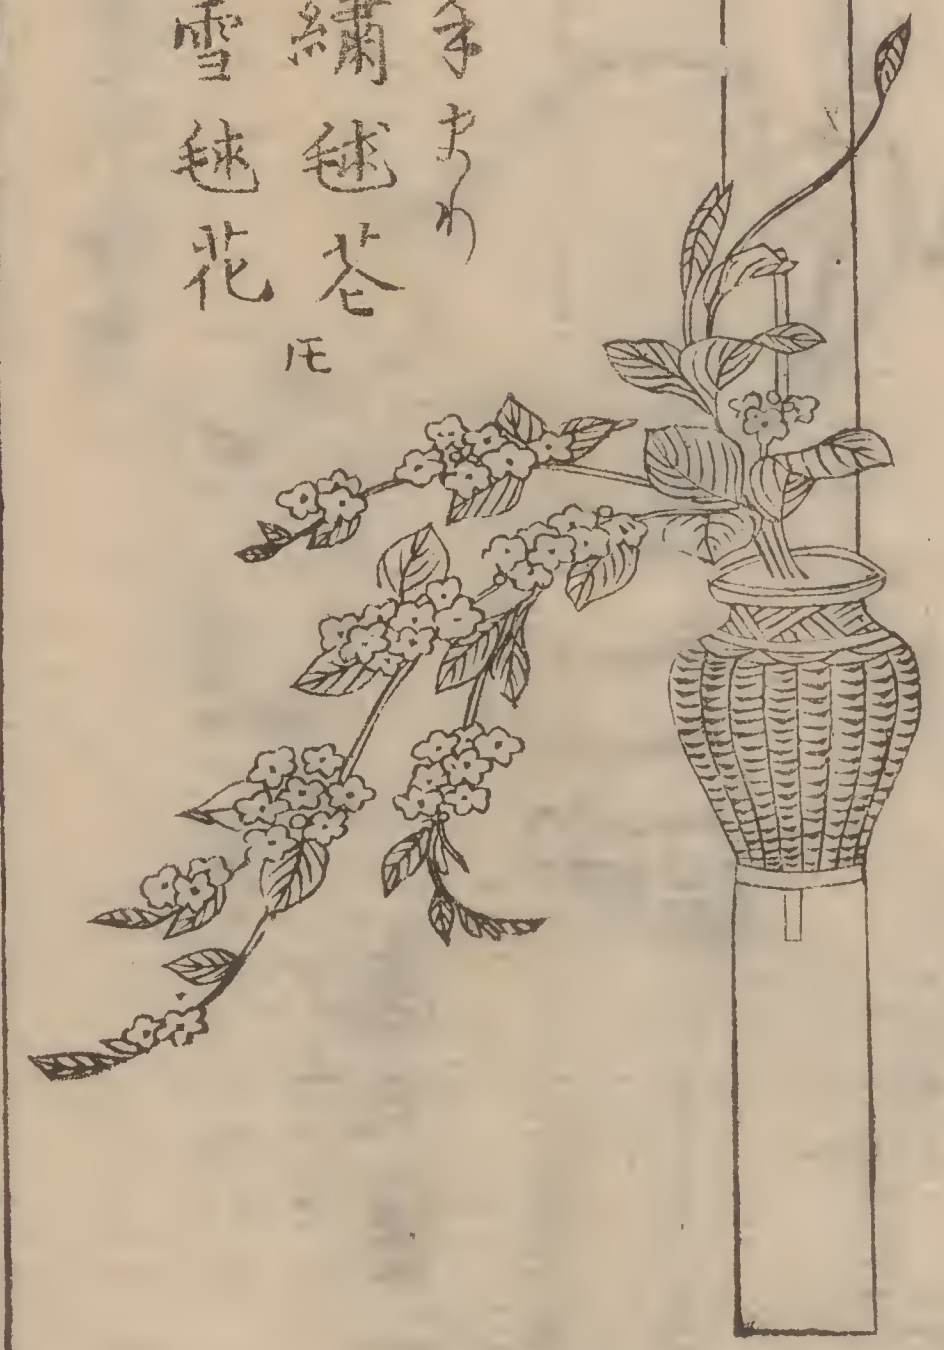 手まり
繡毬花
雪毬花
𪜈